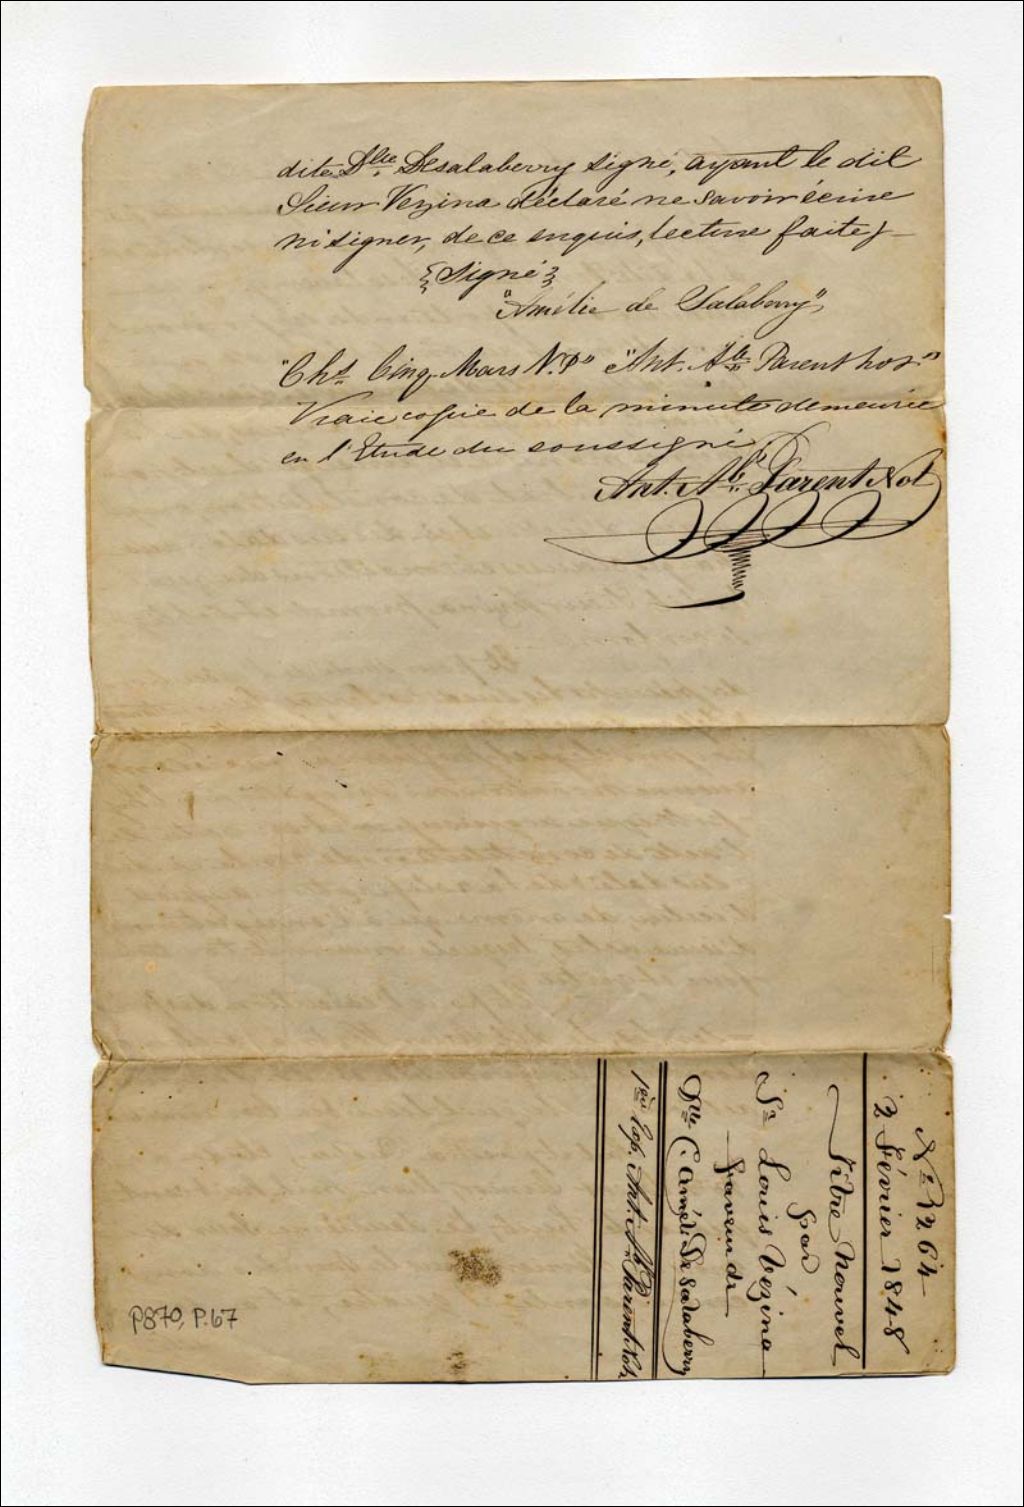 dite Dlle Desalaberry signé, ayant le dit
Sieur Vezina déclaré ne savoir écrire
ni signer, de ce enquis, lecture faite,
{Signé}
"Amélie de Salaberry",
"Chs Cinq-Mars N.P." "Ant. Ab Parent not."
Vraie copie de la minute demeurée
en l'Etude du soussigné,
Ant. Ab Parent Not
No 3264
2 Février 1848
Titre Nouvel
par
Sr Louis Vézina
faveur de
Dlle C. Améli De Salaberry
1ère Exp. Ant. Ab Parent Not.
P870, P.67